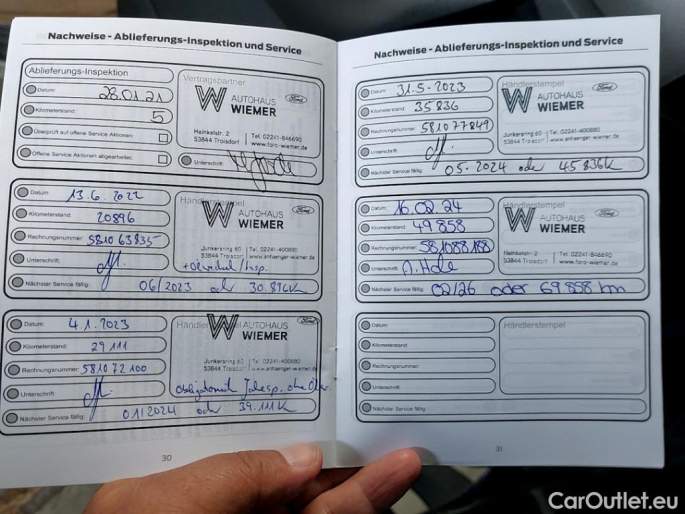 Nachweise - Ablieferungs-Inspektion und Service
Ablieferungs-Inspektion
Datum: 28.01.21
Kilometerstand: 5
Überprüft auf offene Service Aktionen
Offene Service Aktionen abgearbeitet
Vertragspartner
Ford
W AUTOHAUS
WIEMER
Heinkelstr. 2 Tel. 02241-846690
53844 Troisdorf www.ford-wiemer.de
Unterschrift:
Datum: 13.6.2022
Kilometerstand: 20896
Rechnungsnummer: 581063835
Unterschrift:
Händlerstempel
Ford
W AUTOHAUS
WIEMER
Junkersring 60 Tel. 02241-400880
53844 Troisdorf www.anhaenger-wiemer.de
Nächster Service fällig: 06/2023 oder 30.896K
Datum: 4.1.2023
Kilometerstand: 29111
Rechnungsnummer: 581072100
Unterschrift:
Händlerstempel
Ford
W AUTOHAUS
WIEMER
Junkersring 60 Tel. 02241-400880
53844 Troisdorf www.anhaenger-wiemer.de
Nächster Service fällig: 01/2024 oder 39.111K
30
Nachweise - Ablieferungs-Inspektion und Service
Datum: 31.5-2023
Kilometerstand: 35836
Rechnungsnummer: 581077849
Unterschrift:
Händlerstempel
Ford
W AUTOHAUS
WIEMER
Junkersring 60 Tel. 02241-400880
53844 Troisdorf www.anhaenger-wiemer.de
Nächster Service fällig: 05-2024 oder 45836K
Datum: 16.02.24
Kilometerstand: 49858
Rechnungsnummer: 581088188
Unterschrift:
Händlerstempel
Ford
W AUTOHAUS
WIEMER
Heinkelstr. 2 Tel. 02241-846690
53844 Troisdorf www.ford-wiemer.de
Nächster Service fällig: 02/26 oder 69858 km
Datum:
Kilometerstand:
Rechnungsnummer:
Unterschrift:
Händlerstempel
Nächster Service fällig:
31
CarOutlet.eu